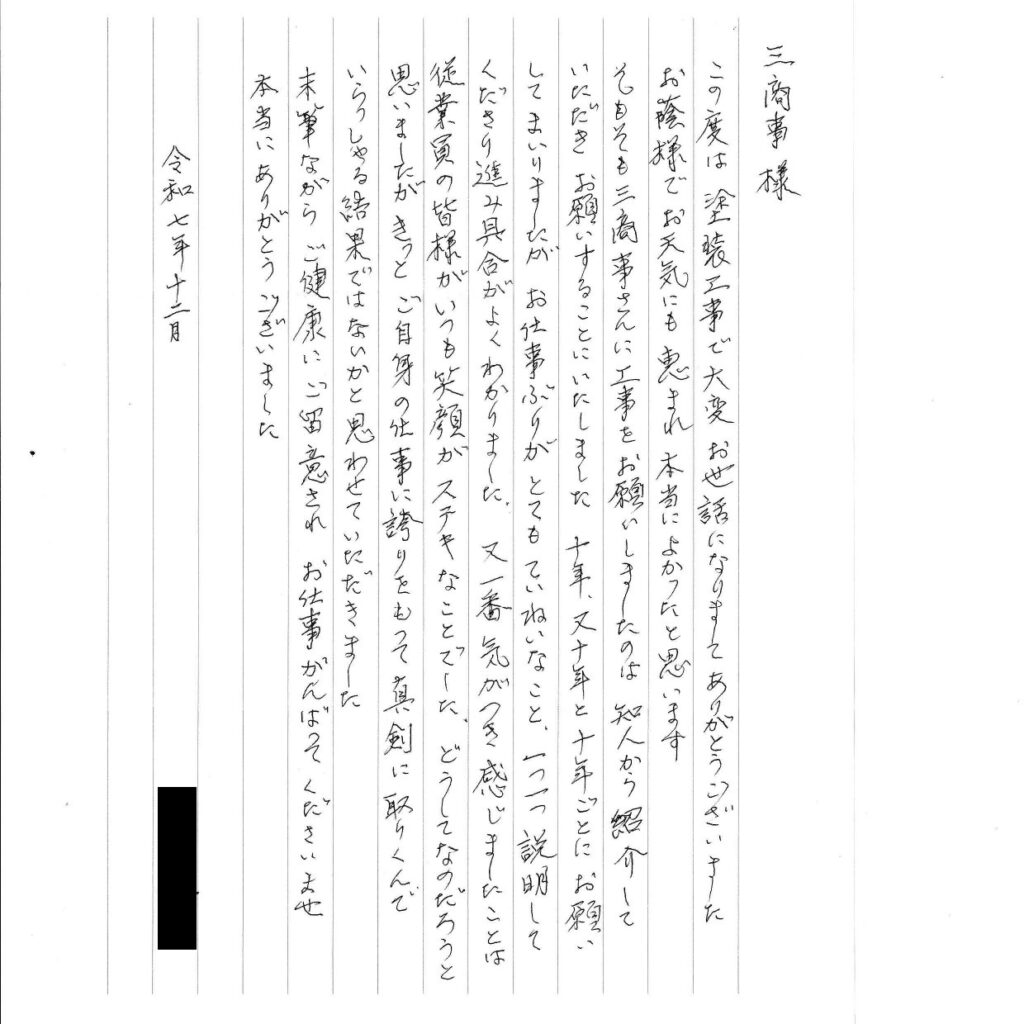 三商事様
この度は 塗装工事で大変 お世話になりましてありがとうございました
お蔭様でお天気にも 恵まれ 本当によかったと思います
そもそも三商事さんに工事をお願いしましたのは 知人から紹介して
いただき お願いすることにいたしました 十年、又十年と十年ごとにお願い
してまいりましたが お仕事ぶりが とてもていねいなこと、一つ一つ 説明して
くださり進み具合がよくわかりました。 又一番気がつき感じましたことは
従業員の皆様がいつも笑顔が ステキなことでした、 どうしてなのだろうと
思いましたがきっと ご自身の仕事に誇りをもって真剣に取りくんで
いらっしゃる結果ではないかと思わせていただきました
末筆ながら ご健康に ご留意され お仕事がんばって くださいませ
本当にありがとう ございました
令和七年十二月